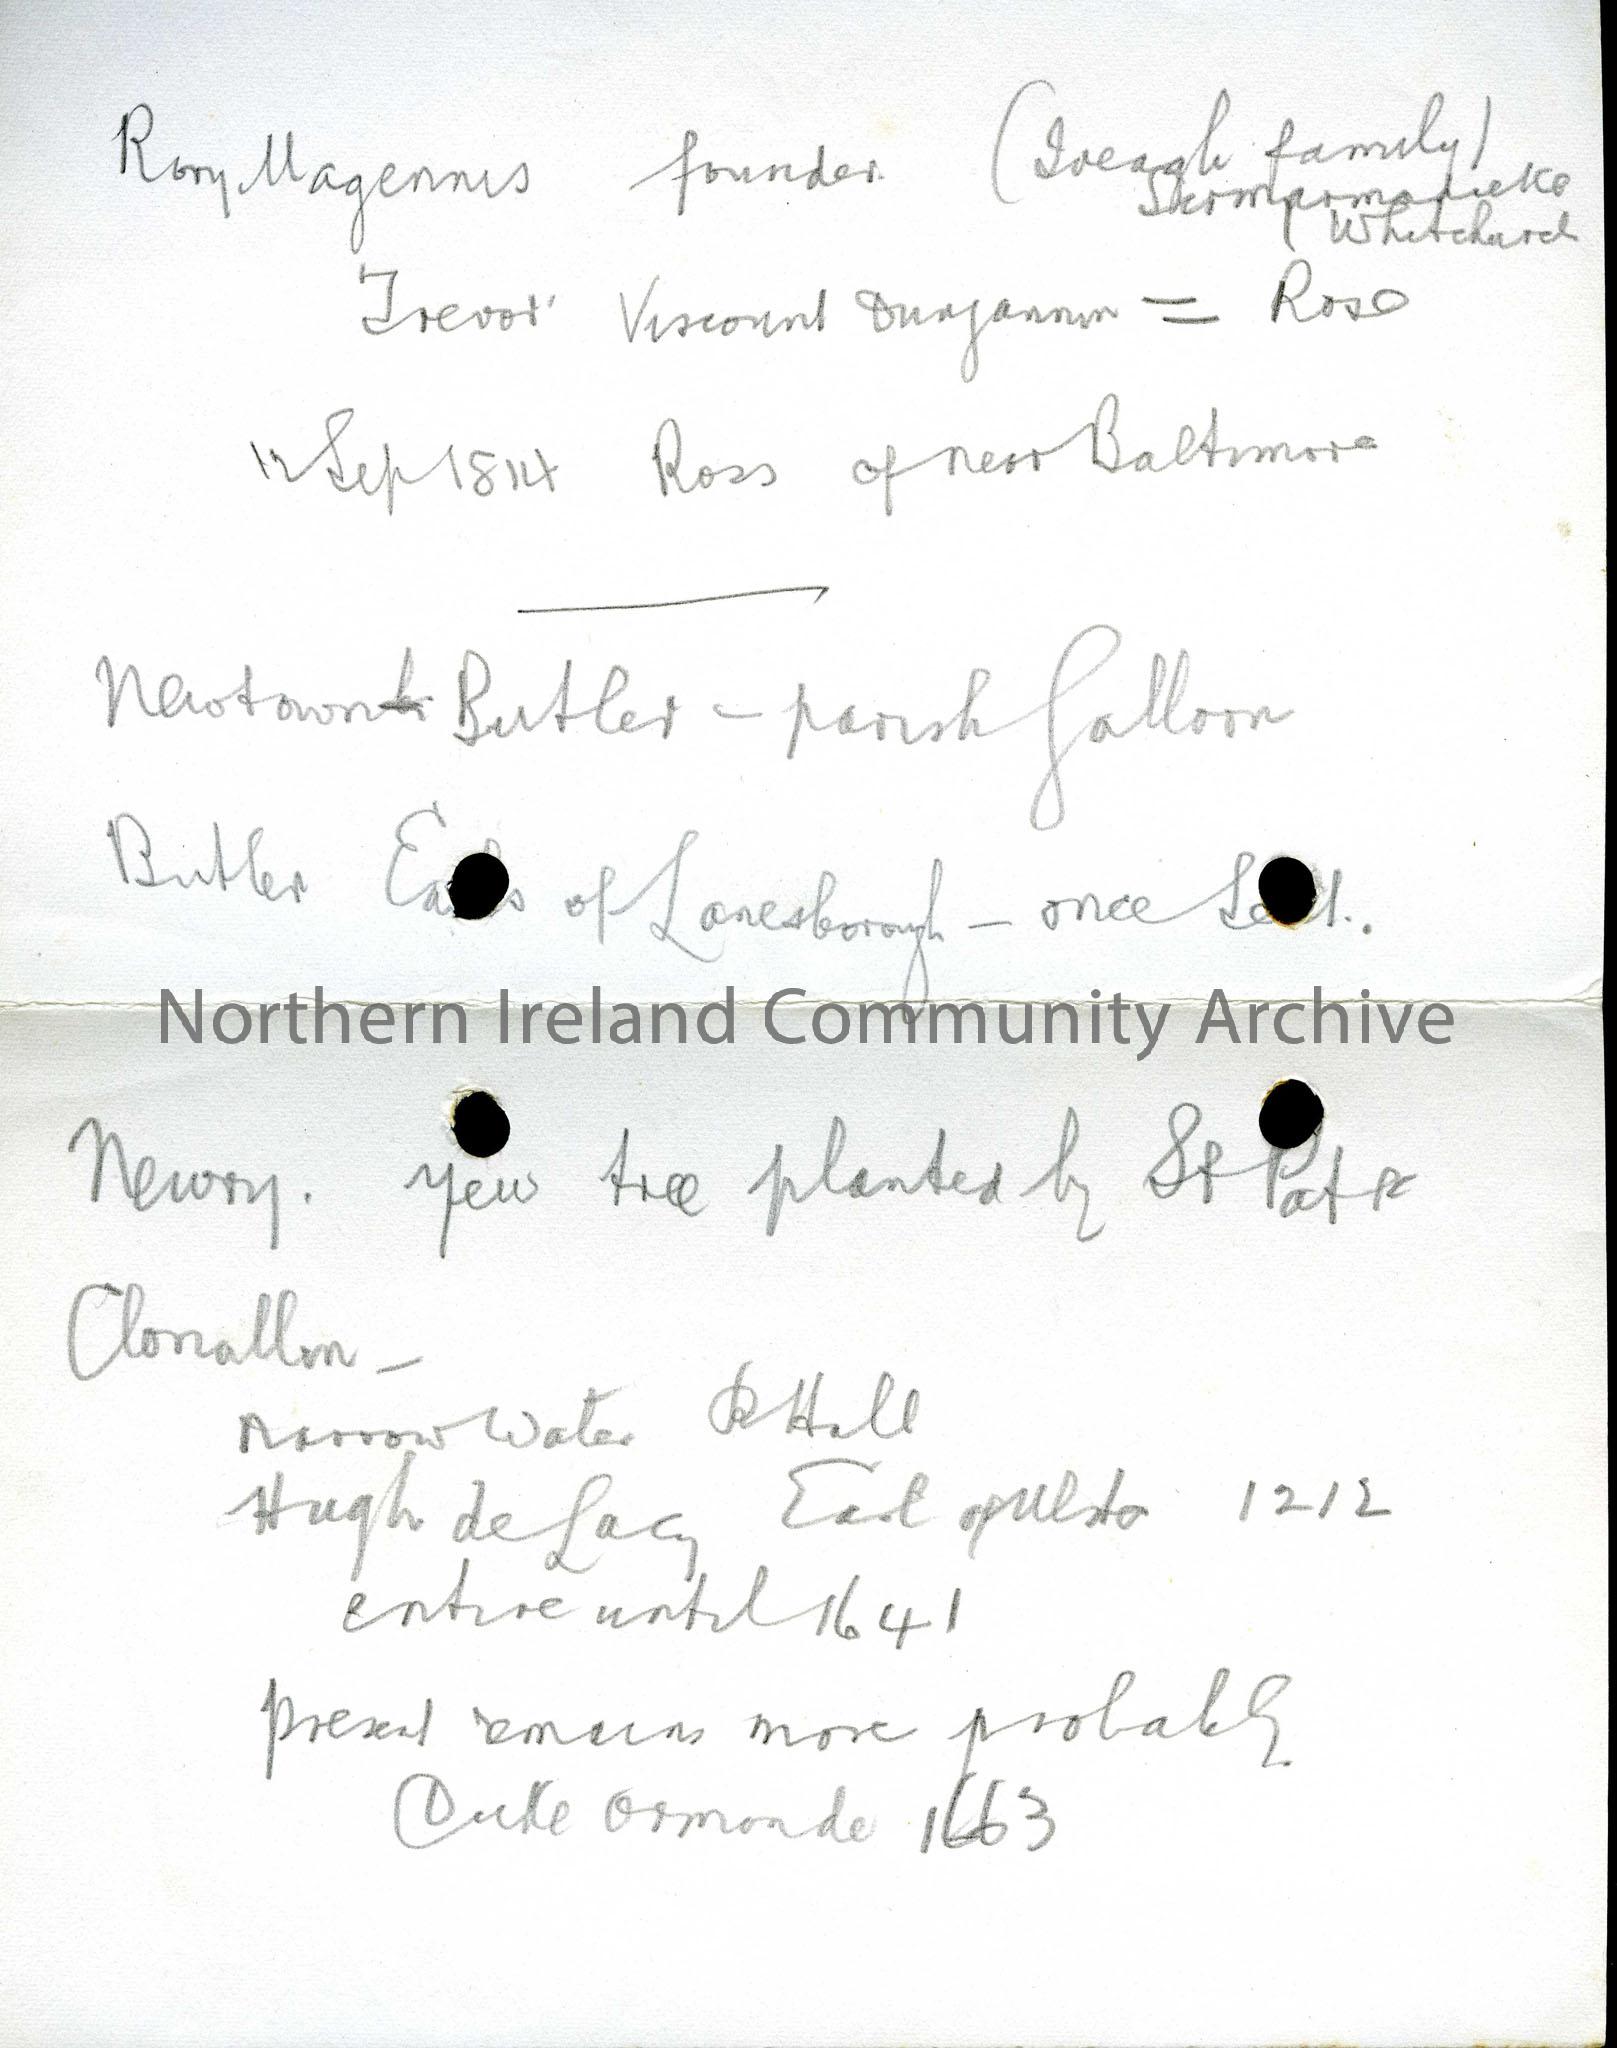 Rory Magennis founder (Iveagh family)
Whitchurch
Trevor Viscount Dungannon = Rose
12 Sep 1814 Ross of near Baltimore
Newtown Butler – parish Galloon
Butler Earls of Lanesborough – once Seat.
Northern Ireland Community Archive
Newry. Yew tree planted by St Patk
Clonallon –
Narrow Water R Hall
Hugh de Lacy Earl of Ulster 1212
entire until 1641
present remains more probably
Duke Ormonde 1663